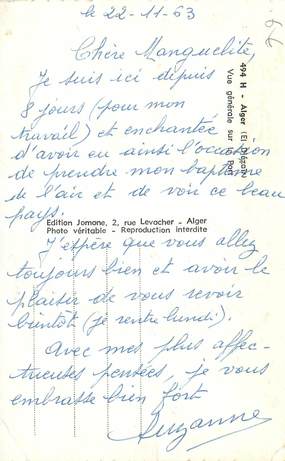 le 22-11-63
Chère Marguerite,
Je suis ici depuis
8 jours (pour mon
travail) et enchantée
d'avoir eu ainsi l'occasion
de prendre mon baptême
de l'air et de voir ce beau
pays.
J'espère que vous allez
toujours bien et avoir le
plaisir de vous revoir
bientôt (je rentre lundi).
Avec mes plus affec-
tueuses pensées, je vous
embrasse bien fort
Suzanne
Edition Jomone, 2, rue Levacher - Alger
Photo véritable - Reproduction interdite
494 H - Alger
Vue générale sur le Port